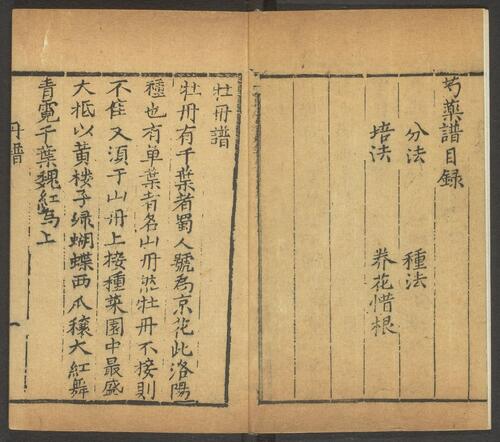 芍藥譜目録
分法　種法
培法　养花惜根
牡丹譜
牡丹有千葉者蜀人號為京花此洛陽
種也有单葉者名山丹然牡丹不接則
不佳又須于山丹上接種菜園中最盛
大抵以黄楼子绿蝴蝶西瓜穰大紅舞
青霓千葉魏紅為上
丹譜
一